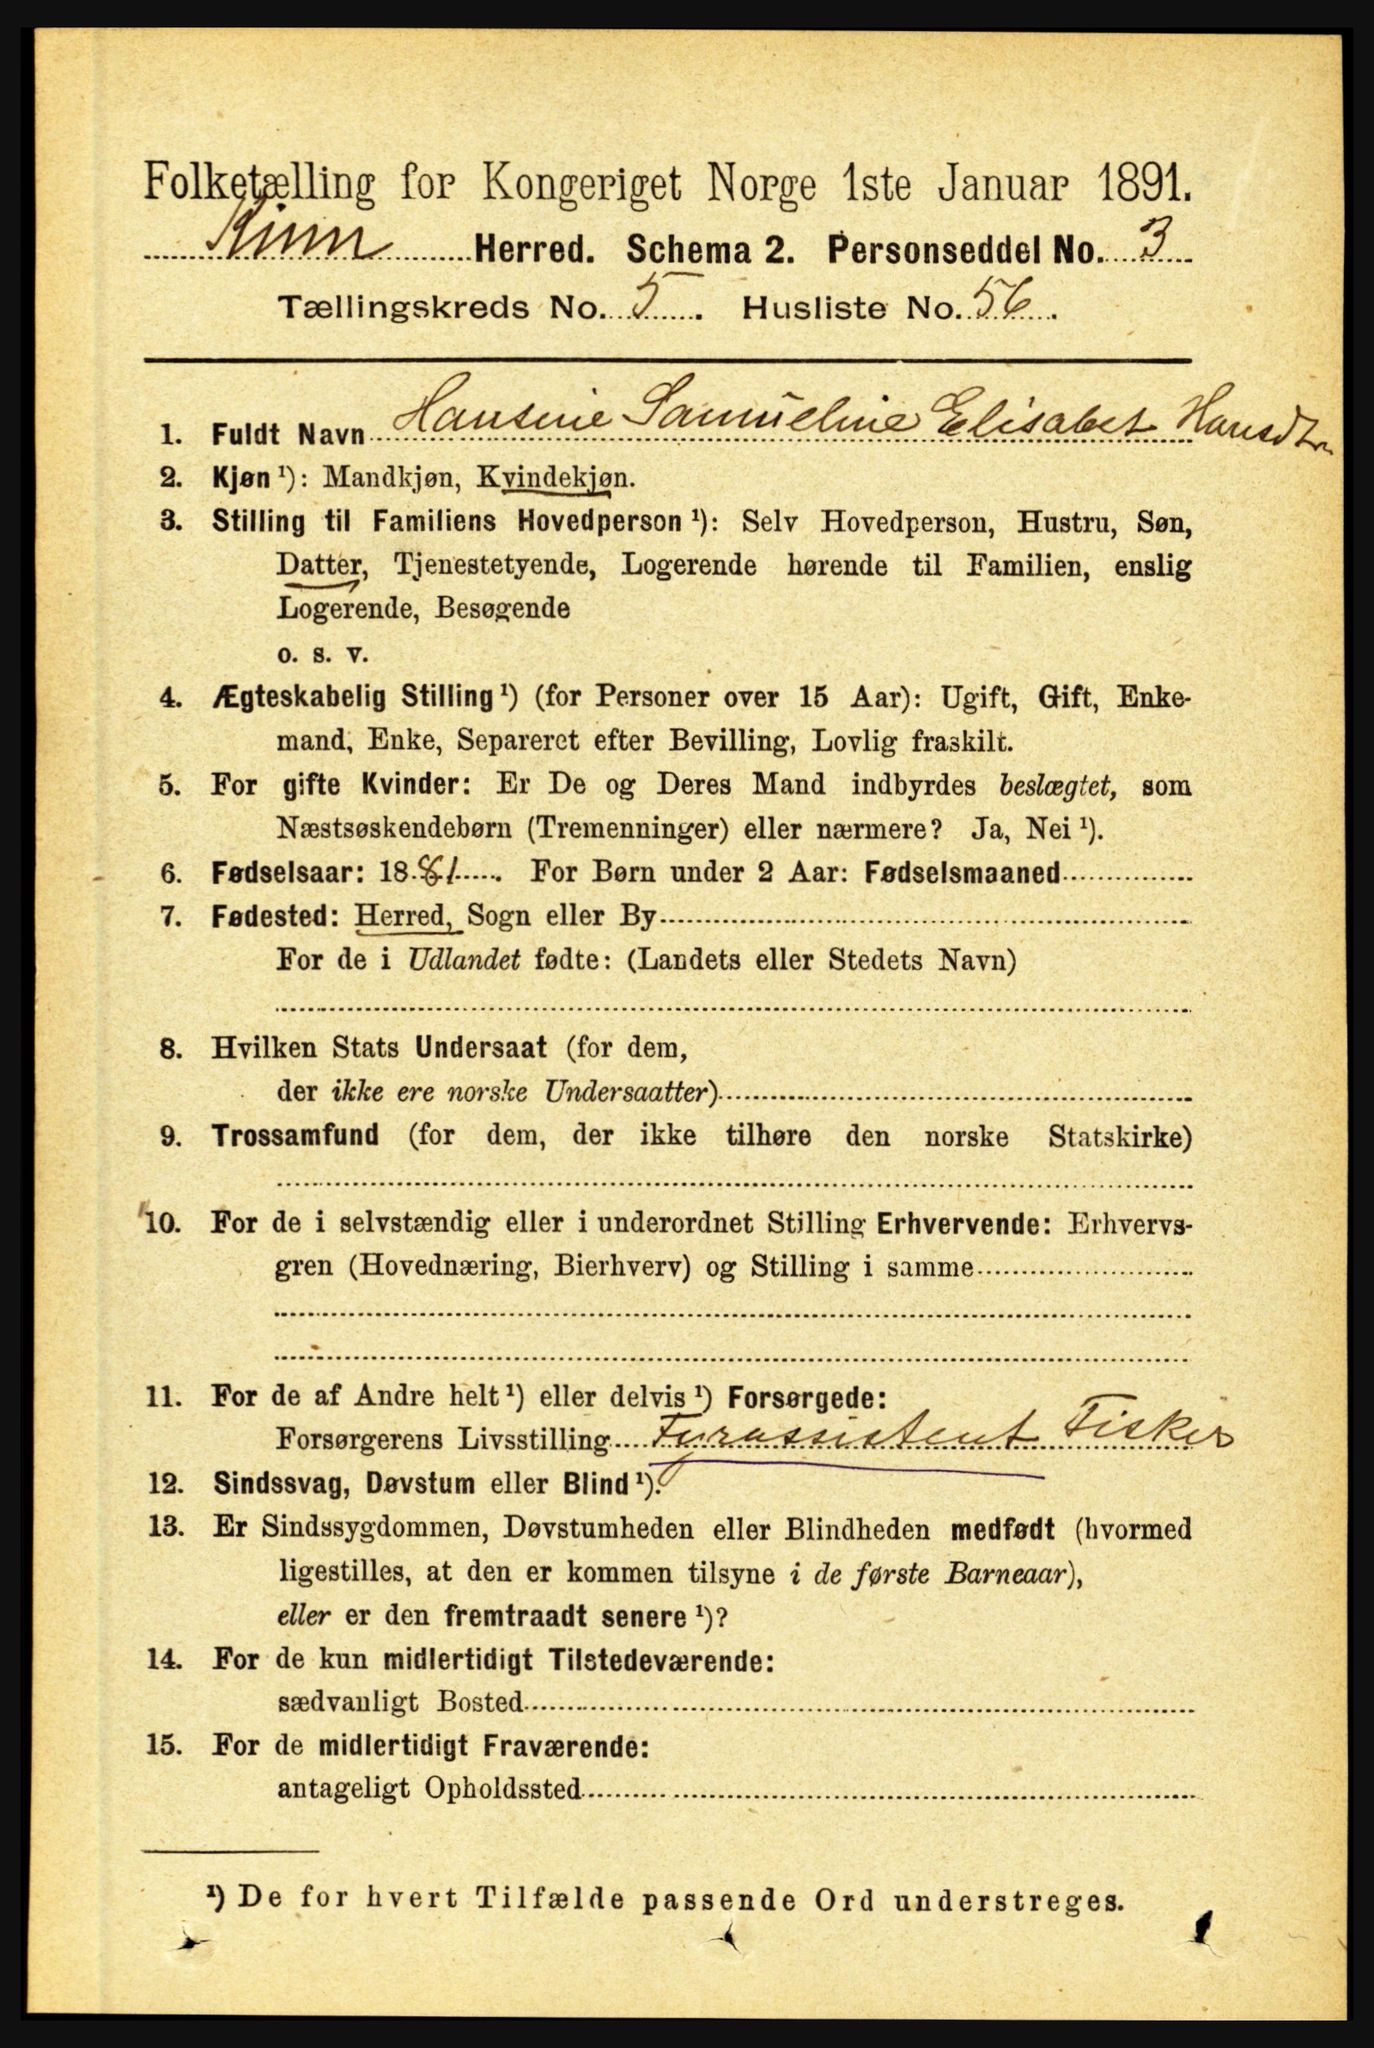 Folketælling for Kongeriget Norge 1ste Januar 1891.
Kinn Herred. Schema 2. Personseddel No. 3
Tællingskreds No. 5. Husliste No. 56.
1. Fuldt Navn Hansine Samueline Elisabet Hansdtr
2. Kjøn ¹): Mandkjøn, Kvindekjøn.
3. Stilling til Familiens Hovedperson ¹): Selv Hovedperson, Hustru, Søn,
Datter, Tjenestetyende, Logerende hørende til Familien, enslig
Logerende, Besøgende
o. s. v.
4. Ægteskabelig Stilling ¹) (for Personer over 15 Aar): Ugift, Gift, Enke-
mand, Enke, Separeret efter Bevilling, Lovlig fraskilt.
5. For gifte Kvinder: Er De og Deres Mand indbyrdes beslægtet, som
Næstsøskendebørn (Tremenninger) eller nærmere? Ja, Nei ¹).
6. Fødselsaar: 1881. For Børn under 2 Aar: Fødselsmaaned
7. Fødested: Herred, Sogn eller By
For de i Udlandet fødte: (Landets eller Stedets Navn)
8. Hvilken Stats Undersaat (for dem,
der ikke ere norske Undersaatter)
9. Trossamfund (for dem, der ikke tilhøre den norske Statskirke)
10. For de i selvstændig eller i underordnet Stilling Erhvervende: Erhvervs-
gren (Hovednæring, Bierhverv) og Stilling i samme
11. For de af Andre helt ¹) eller delvis ¹) Forsørgede:
Forsørgerens Livsstilling Fyrassistent Fisker
12. Sindssvag, Døvstum eller Blind ¹).
13. Er Sindssygdommen, Døvstumheden eller Blindheden medfødt (hvormed
ligestilles, at den er kommen tilsyne i de første Barneaar),
eller er den fremtraadt senere ¹)?
14. For de kun midlertidigt Tilstedeværende:
sædvanligt Bosted
15. For de midlertidigt Fraværende:
antageligt Opholdssted
¹) De for hvert Tilfælde passende Ord understreges.